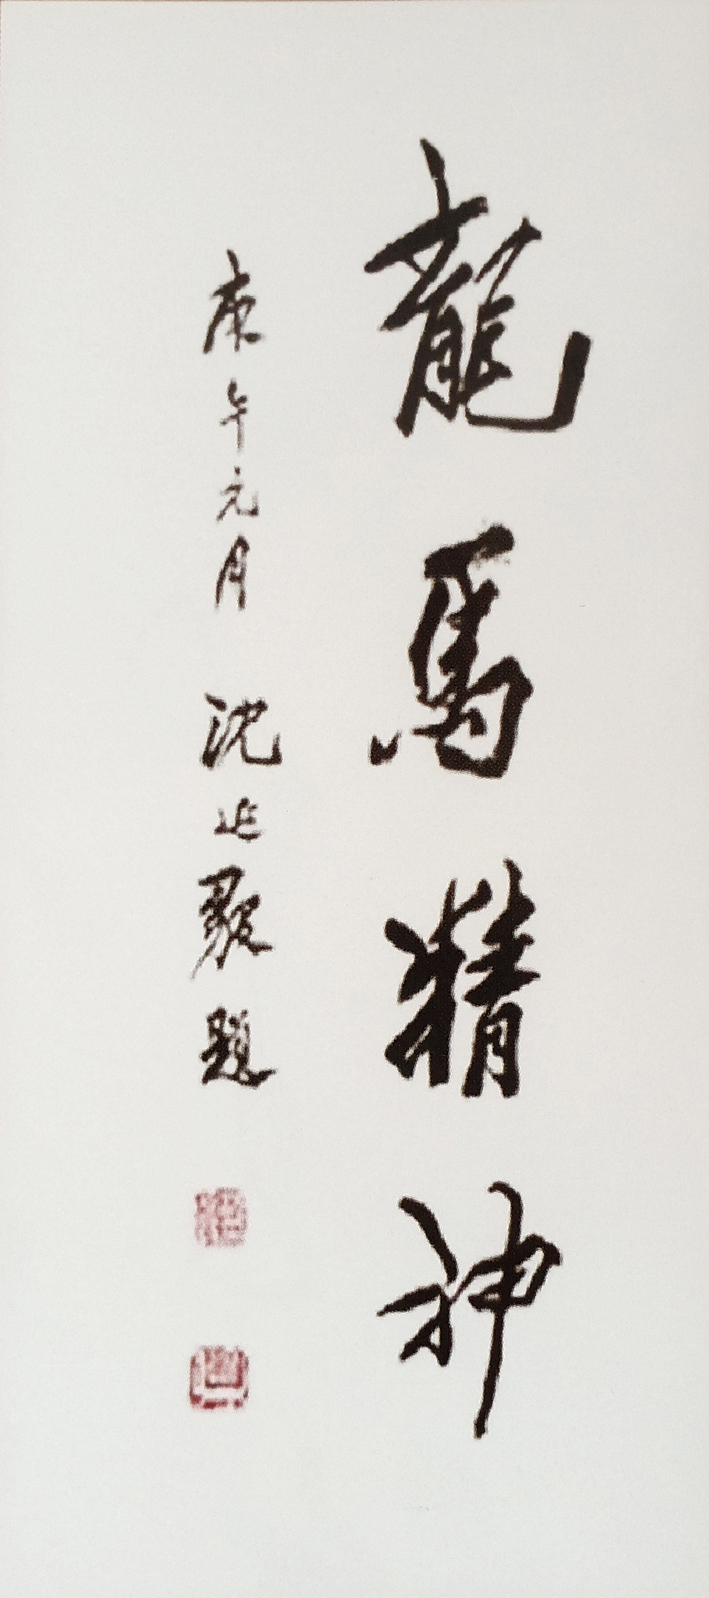 龍馬精神
庚午元月 沈延毅題